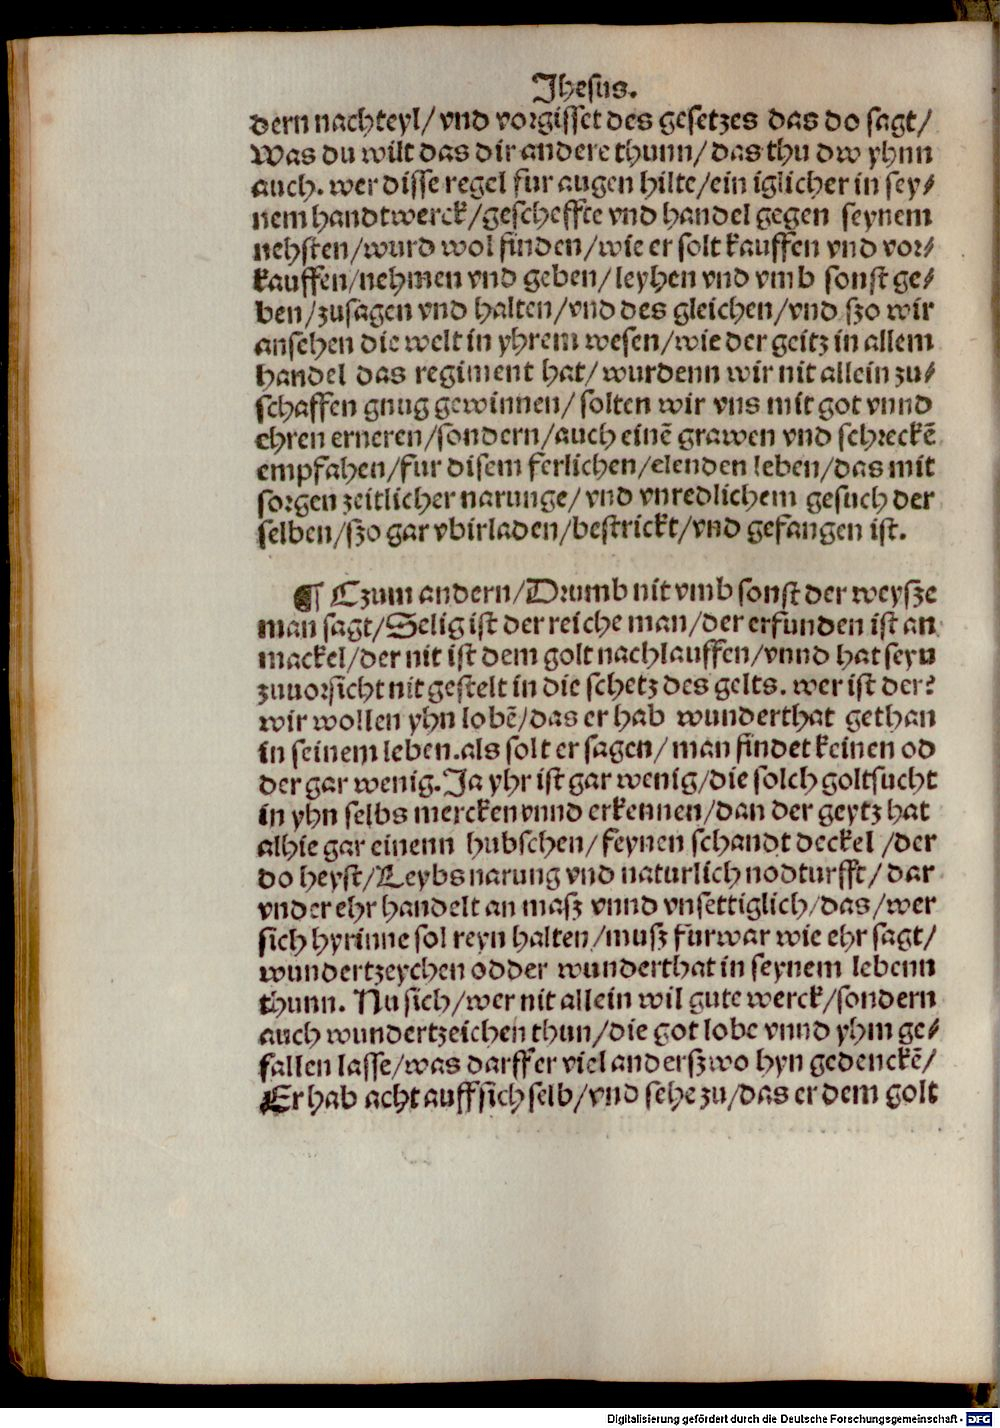 Jhesus.
dern nachteyl/ vnd vorgisset des gesetzes das do sagt/
Was du wilt das dir andere thunn/ das thu dw yhnn
auch. wer disse regel fur augen hilte/ein iglicher in sey⸗
nem handtwerck/gescheffte vnd handel gegen seynem
nehsten/wurd wol finden/wie er solt kauffen vnd vor⸗
kauffen/nehmen vnd geben/ leyhen vnd vmb sonst ge⸗
ben/zusagen vnd halten/vnd des gleichen/vnd szo wir
ansehen die welt in yhrem wesen/wie der geitz in allem
handel das regiment hat/ wurdenn wir nit allein zu⸗
schaffen gnug gewinnen/ solten wir vns mit got vnnd
ehren erneren/sondern/auch einē grawen vnd schreckē
empfahen/fur disem ferlichen/elenden leben/das mit
sorgen zeitlicher narunge/ vnd vnredlichem gesuch der
selben/szo gar vbirladen/bestrickt/vnd gefangen ist.
¶ Czum andern/Drumb nit vmb sonst der weysze
man sagt/Selig ist der reiche man/der erfunden ist an
mackel/der nit ist dem golt nachlauffen/vnnd hat seyn
zuuorsicht nit gestelt in die schetz des gelts. wer ist der?
wir wollen yhn lobē/das er hab wunderthat gethan
in seinem leben.als solt er sagen/ man findet keinen od
der gar wenig. Ja yhr ist gar wenig/die solch goltsucht
in yhn selbs mercken vnnd erkennen/dan der geytz hat
alhie gar einenn hubschen/ feynen schandt deckel /der
do heyst/Leybs narung vnd naturlich nodturfft/ dar
vnder ehr handelt an masz vnnd vnsettiglich/das/wer
sich hyrinne sol reyn halten/musz furwar wie ehr sagt/
wundertzeychen odder wunderthat in seynem lebenn
thunn. Nu sich/wer nit allein wil gute werck/sondern
auch wundertzeichen thun/die got lobe vnnd yhm ge⸗
fallen lasse/was darff er viel anderszwo hyn gedenckē/
Er hab acht auff sich selb/vnd sehe zu/das er dem golt
Digitalisierung gefördert durch die Deutsche Forschungsgemeinschaft - DFG